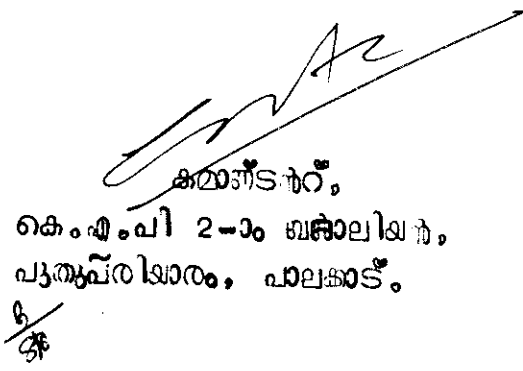 കമാണ്ടൻറ്,
കെ.എ.പി 2-ാം ബറ്റാലിയൻ,
പുതുപ്പരിയാരം, പാലക്കാട്.